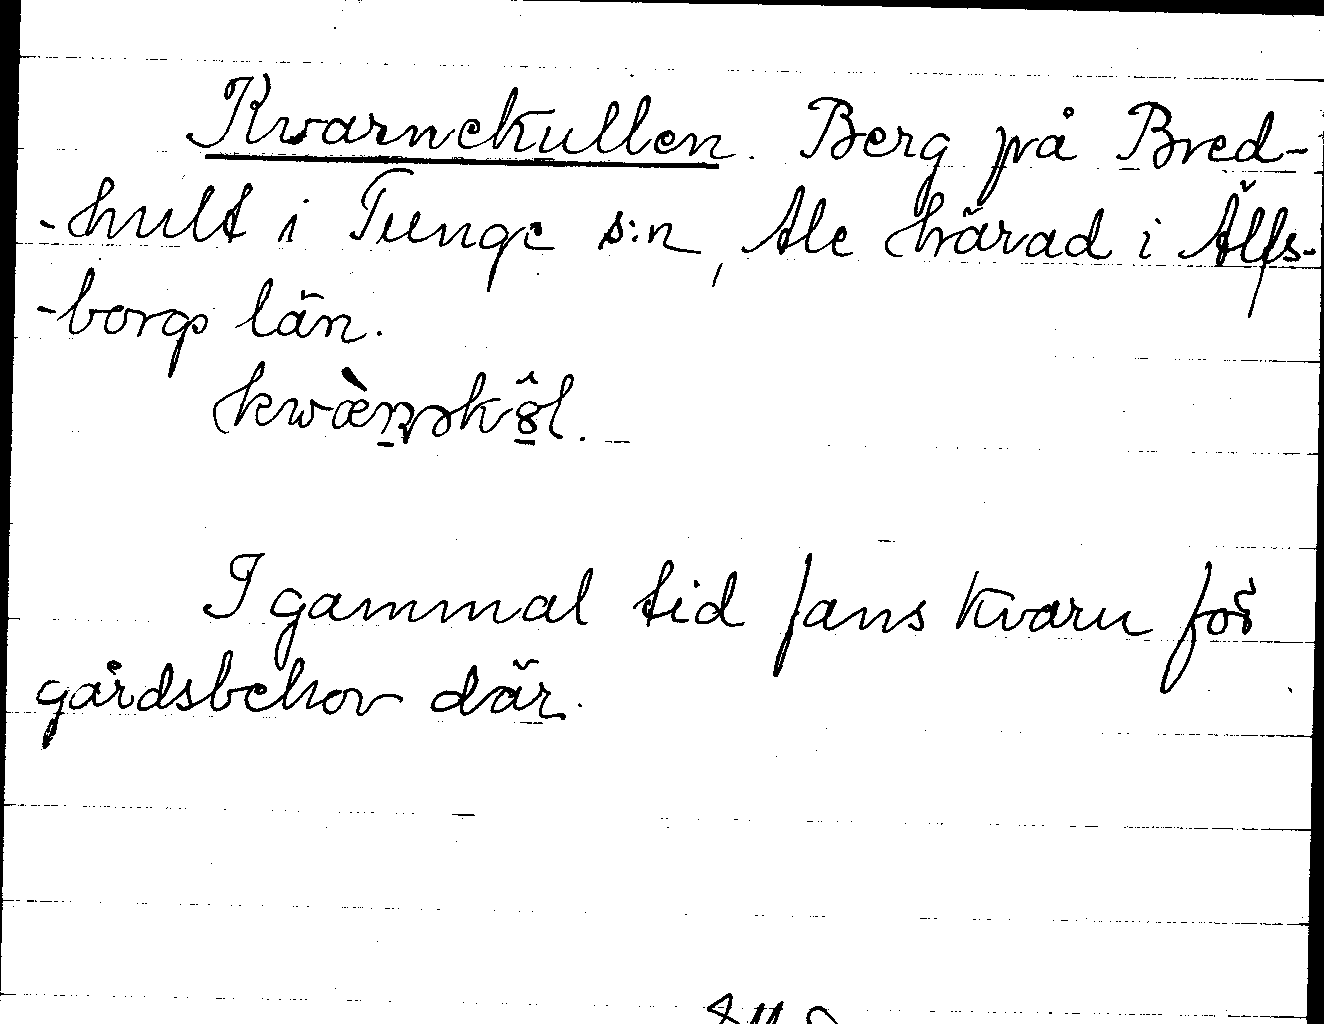 Kvarnekullen. Berg på Bred-
-hult i Tunge s:n, Ale härad i Älfs-
-borgs län.
kwæ̀ṉəkô̱l.
I gammal tid fans kvarn för
gårdsbehov där.